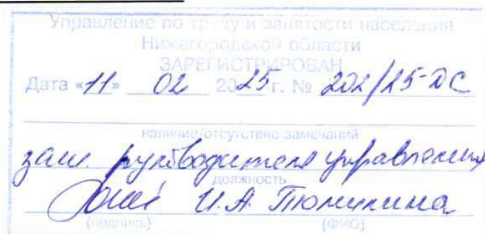 Управление по труду и занятости населения
Нижегородской области
ЗАРЕГИСТРИРОВАН
Дата «11» 02 2025 г. № 202/25-ДС
наличие/отсутствие замечаний
зам. руководителя управления
должность
И.А. Тюмикина
(подпись) (ФИО)